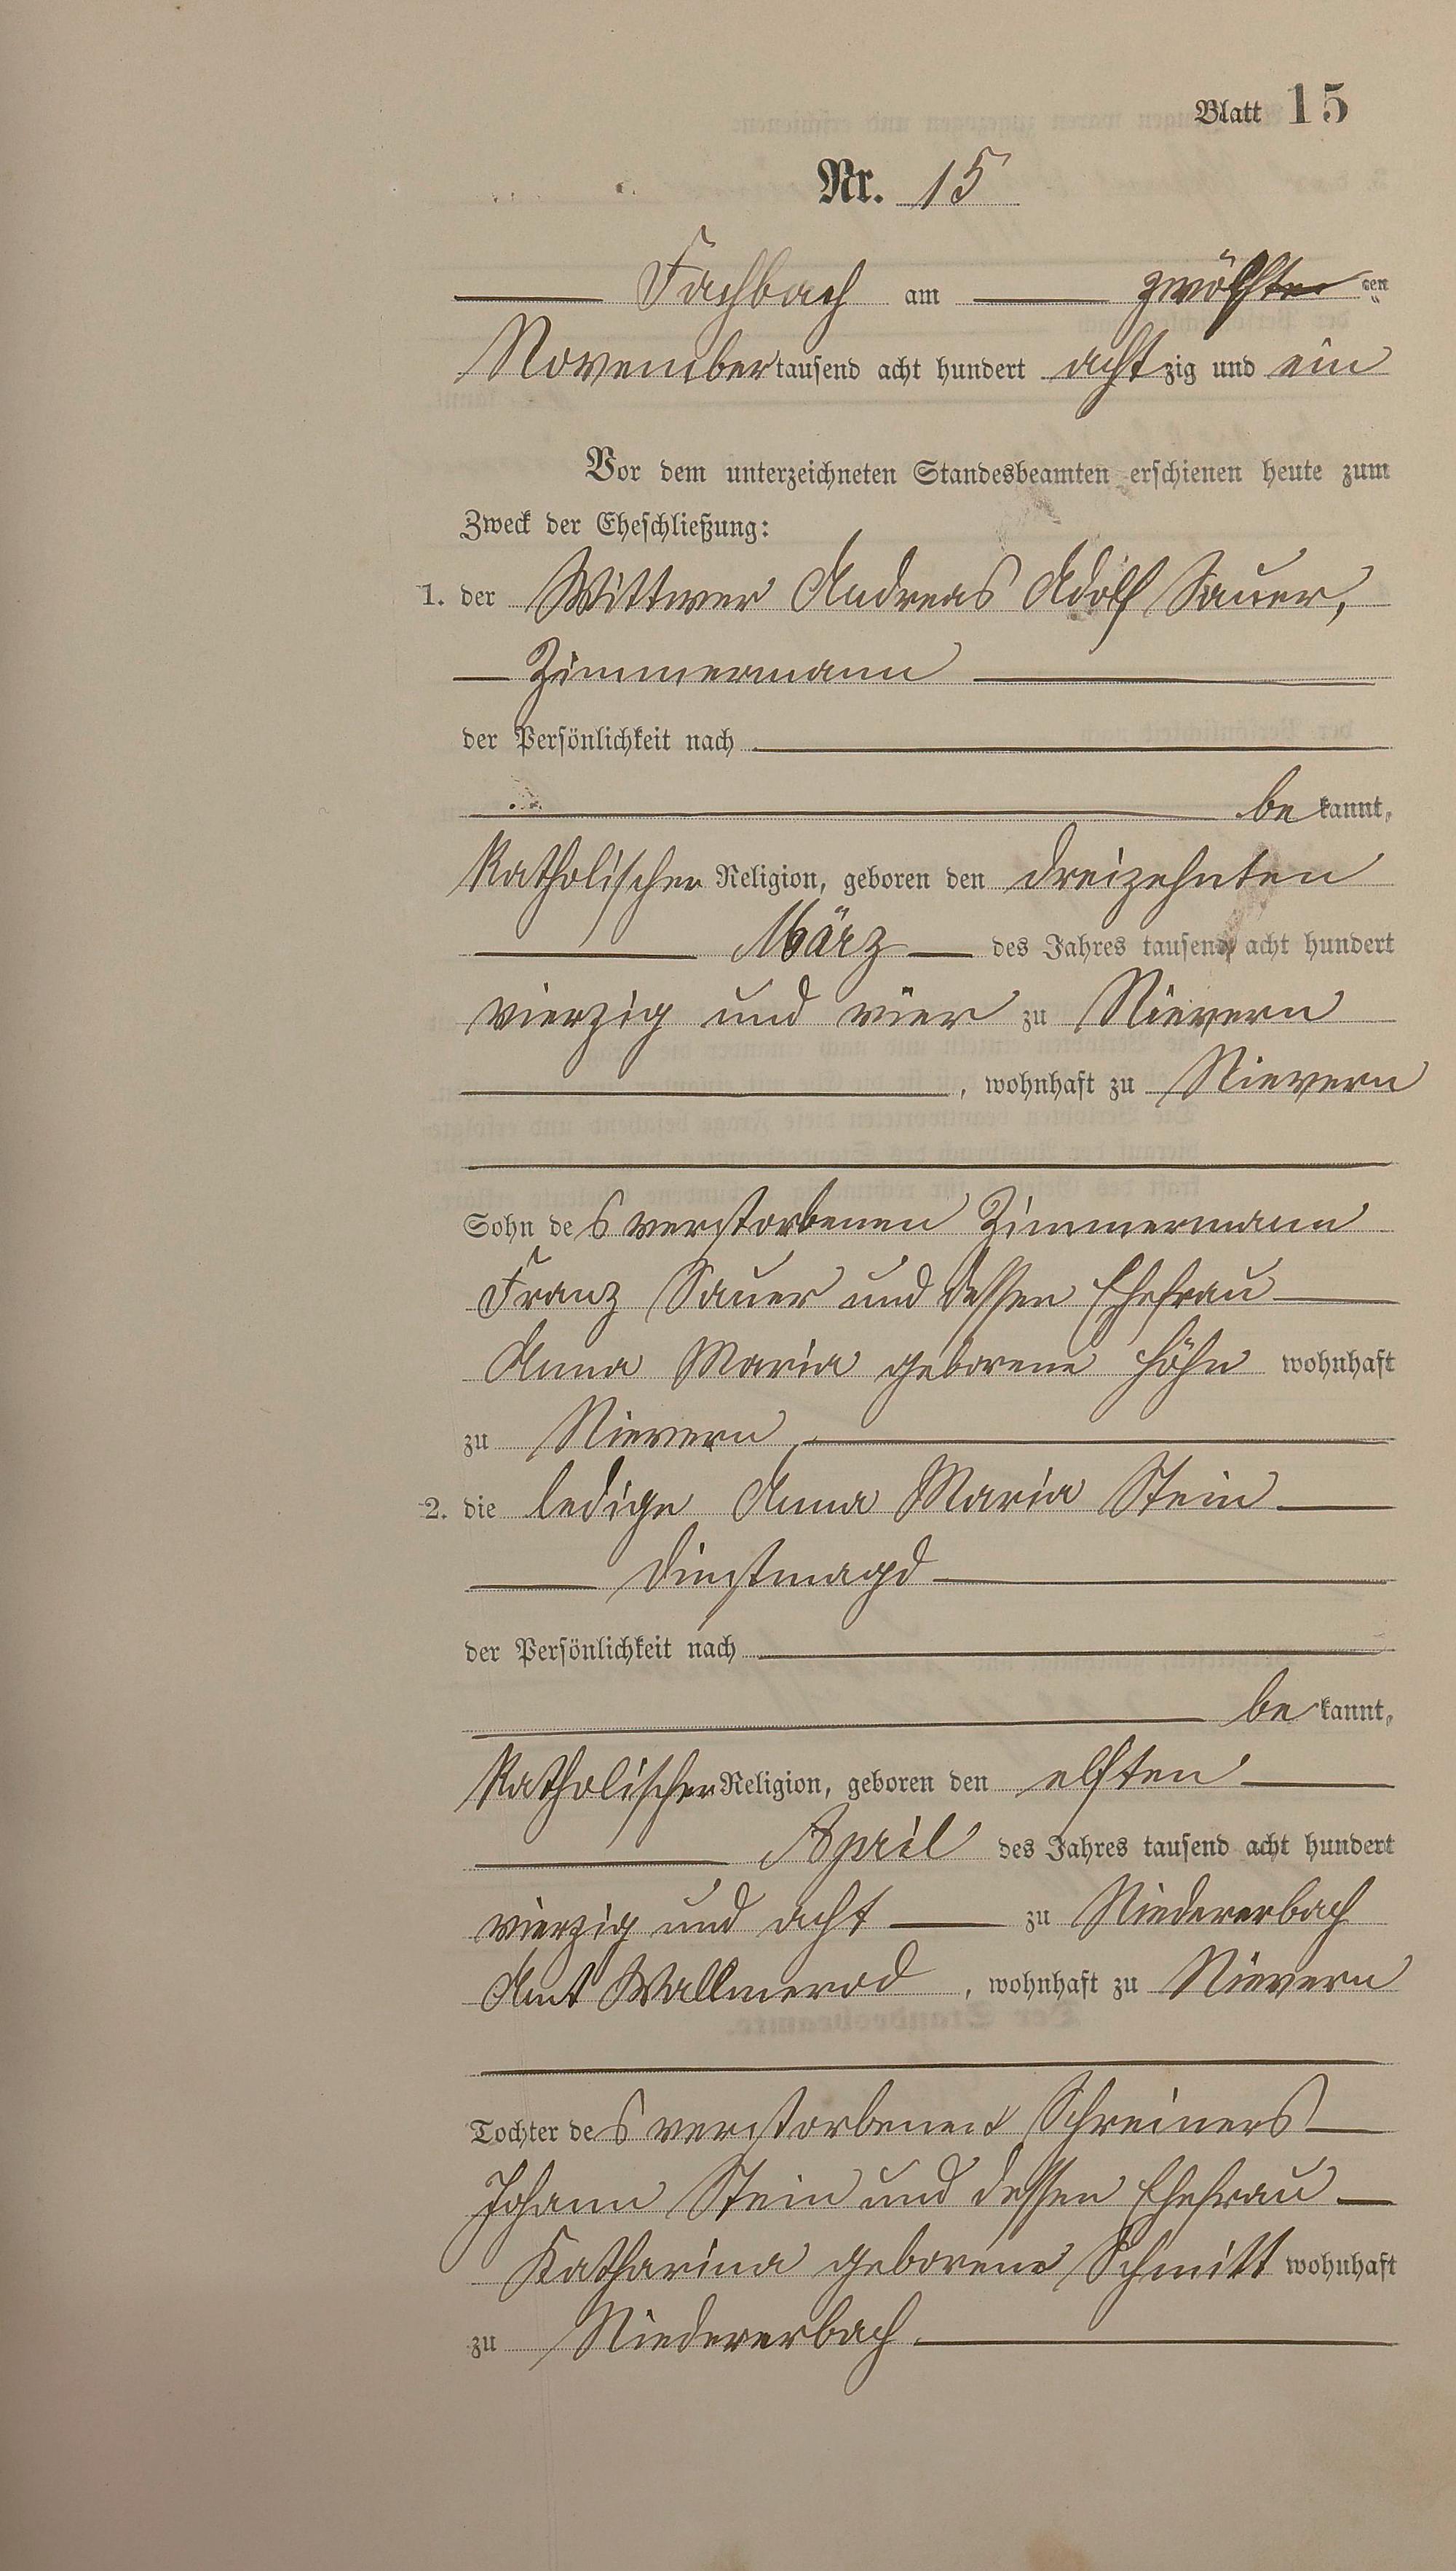 Blatt 15
Nr. 15
Fachbach am zwölften ten
November tausend acht hundert achtzig und ein
Vor dem unterzeichneten Standesbeamten erschienen heute zum
Zweck der Eheschließung:
1. der Wittwer Andreas Adolf Sauer,
Zimmermann
der Persönlichkeit nach
be kannt,
Katholischer Religion, geboren den dreizehnten
März des Jahres tausend acht hundert
vierzig und vier zu Nievern
, wohnhaft zu Nievern
Sohn des verstorbenen Zimmermann
Franz Sauer und dessen Ehefrau
Anna Maria geborene Höhn wohnhaft
zu Nievern
2. die ledige Anna Maria Stein
Dienstmagd
der Persönlichkeit nach
be kannt,
Katholischer Religion, geboren den elften
April des Jahres tausend acht hundert
vierzig und acht zu Niedererbach
Amt Wallmerod, wohnhaft zu Nievern
Tochter des verstorbenen Schreiners
Johann Stein und dessen Ehefrau
Katharina geborene Schmitt wohnhaft
zu Niedererbach.